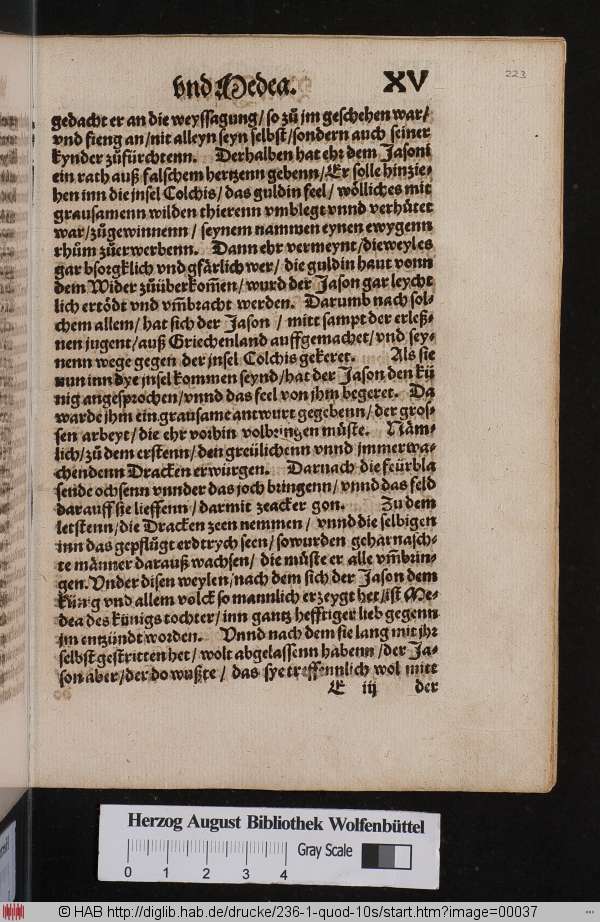 vnd Medea. XV
223
gedacht er an die weyssagung / so zů jm geschehen war /
vnd fieng an / nit alleyn seyn selbst / sondern auch seiner
kynder zůfürchtenn. Derhalben hat ehr dem Jasoni
ein rath auß falschem hertzenn gebenn / Er solle hinzie-
hen inn die jnsel Colchis / das guldin feel / wölliches mit
grausamenn wilden thierenn vmblegt vnnd verhůtet
war / zůgewinnenn / seynem nammen eynen ewygenn
rhům zůerwerbenn. Dann ehr vermeynt / dieweyl es
gar bsorgklich vnd gfärlich wer / die guldin haut vonn
dem Wider zůüberkom̃en / wurd der Jason gar leycht
lich ertödt vnd vm̃bracht werden. Darumb nach sol-
chem allem / hat sich der Jason / mitt sampt der erleß-
nen jugent / auß Griechenland auffgemachet / vnd sey-
nenn wege gegen der jnsel Colchis gekeret. Als sie
nun inn dye jnsel kommen seynd / hat der Jason den kü
nig angesprochen / vnnd das feel von jhm begeret. Da
warde jhm ein grausame antwurt gegebenn / der gros-
sen arbeyt / die ehr vorhin volbringen můste. Näm-
lich / zů dem erstenn / den greülichenn vnnd jmmerwa-
chendenn Dracken erwürgen. Darnach die feürbla
sende ochsenn vnnder das joch bringenn / vnnd das feld
darauff sie lieffenn / darmit zeacker gon. Zu dem
letstenn / die Dracken zeen nemmen / vnnd die selbigen
inn das gepflügt erdtrych seen / so wurden geharnasch-
te männer darauß wachsen / die můste er alle vm̃brin-
gen. Vnder disen weylen / nach dem sich der Jason dem
künig vnd allem volck so mannlich erzeygt het / ist Me-
dea des künigs tochter / inn gantz hefftiger lieb gegenn
jm entzündt worden. Vnnd nach dem sie lang mit jhr
selbst gestritten het / wolt abgelassenn habenn / der Ja-
son aber / der do wußte / das sye treffennlich wol mitt
E iij der
Herzog August Bibliothek Wolfenbüttel
Gray Scale
0 1 2 3 4
© HAB http://diglib.hab.de/drucke/236-1-quod-10s/start.htm?image=00037